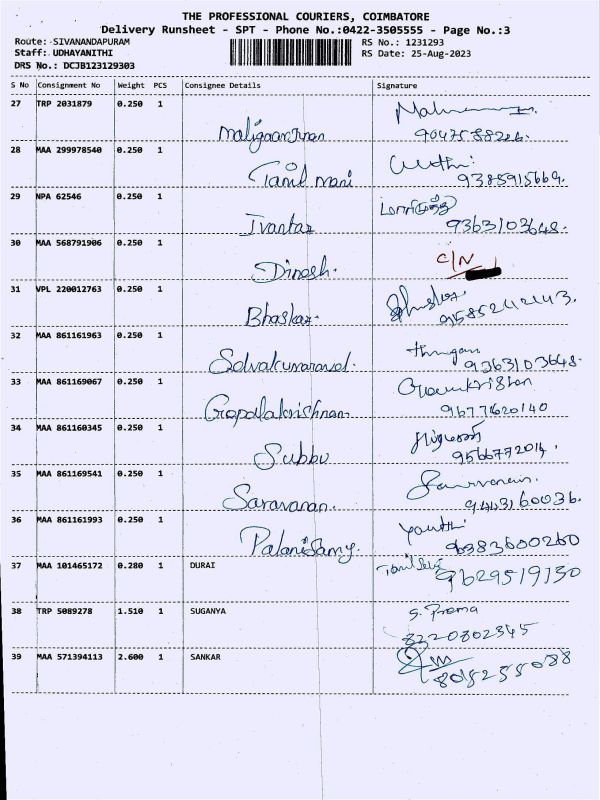 THE PROFESSIONAL COURIERS, COIMBATORE
Delivery Runsheet - SPT - Phone No.:0422-3505555 - Page No.:3
Route: SIVANANDAPURAM RS No.: 1231293
Staff: UDHAYANITHI RS Date: 25-Aug-2023
DRS No.: DCJB123129303
S No Consignment No Weight PCS Consignee Details Signature
27 TRP 2031879 0.250 1
28 MAA 299978540 0.250 1 Tamil mani 9385915669.
29 NPA 62546 0.250 1 9363103648.
30 MAA 568791906 0.250 1 Dinesh. C/N
31 VPL 220012763 0.250 1 Bhaskar.
32 MAA 861161963 0.250 1 Selvakumaravel. 9363103648.
33 MAA 861169067 0.250 1 Gopalakrishnan 9677620140
34 MAA 861160345 0.250 1 Subbu 9566772014.
35 MAA 861169541 0.250 1 Saravanan. 9443160036.
36 MAA 861161993 0.250 1 Palanisamy. 6383600260
37 MAA 101465172 0.280 1 DURAI 9629519130
38 TRP 5089278 1.510 1 SUGANYA S. Prema
8220802345
39 MAA 571394113 2.600 1 SANKAR